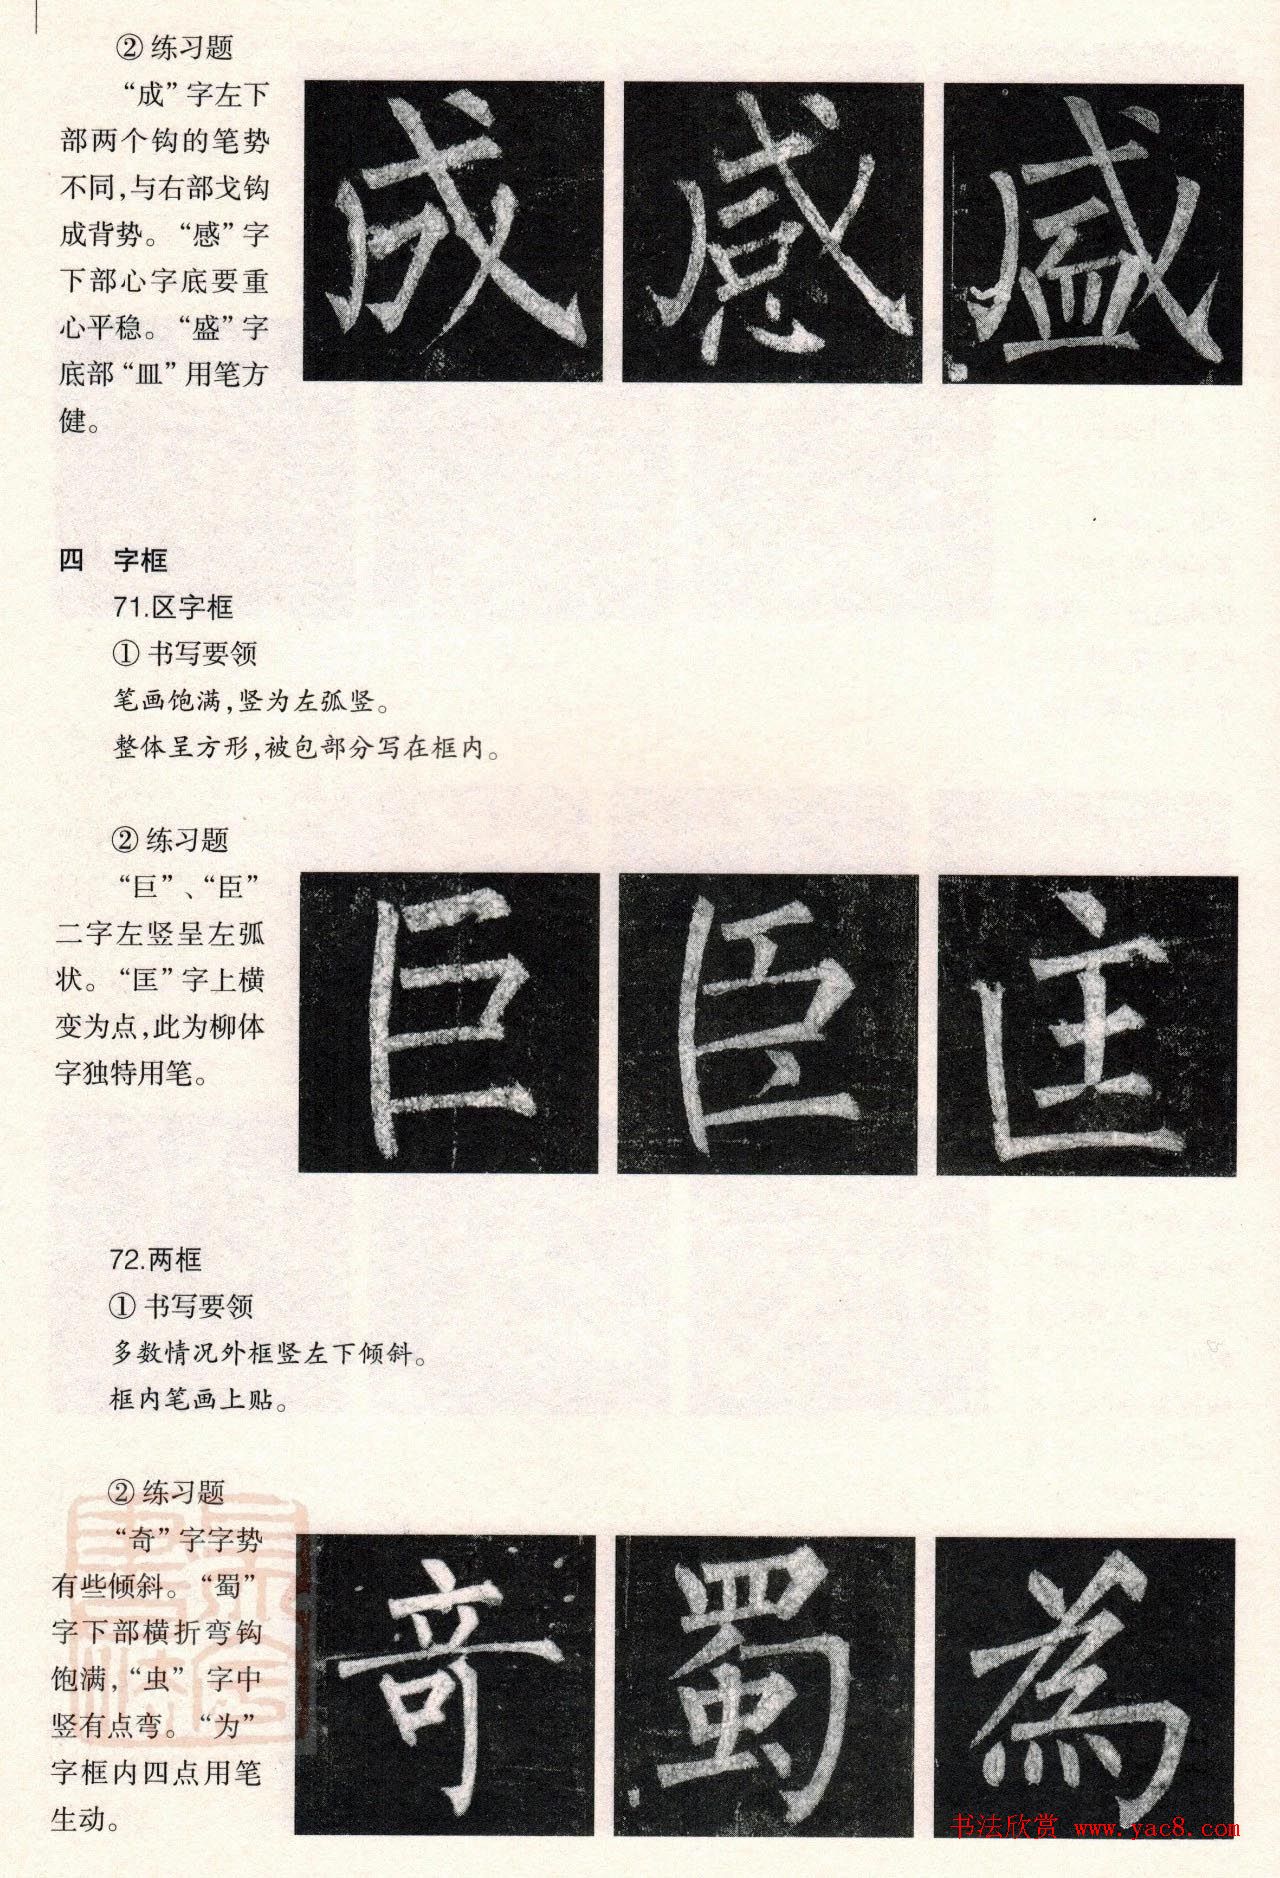 ② 练习题
“成”字左下
部两个钩的笔势
不同,与右部戈钩
成背势。“感”字
下部心字底要重
心平稳。“盛”字
底部“皿”用笔方
健。
成 感 盛
四 字框
71.区字框
① 书写要领
笔画饱满,竖为左弧竖。
整体呈方形,被包部分写在框内。
② 练习题
“巨”、“臣”
二字左竖呈左弧
状。“匡”字上横
变为点,此为柳体
字独特用笔。
巨 臣 匡
72.两框
① 书写要领
多数情况外框竖左下倾斜。
框内笔画上贴。
② 练习题
“奇”字字势
有些倾斜。“蜀”
字下部横折弯钩
饱满,“虫”字中
竖有点弯。“为”
字框内四点用笔
生动。
奇 蜀 為
书法欣赏 www.yac8.com